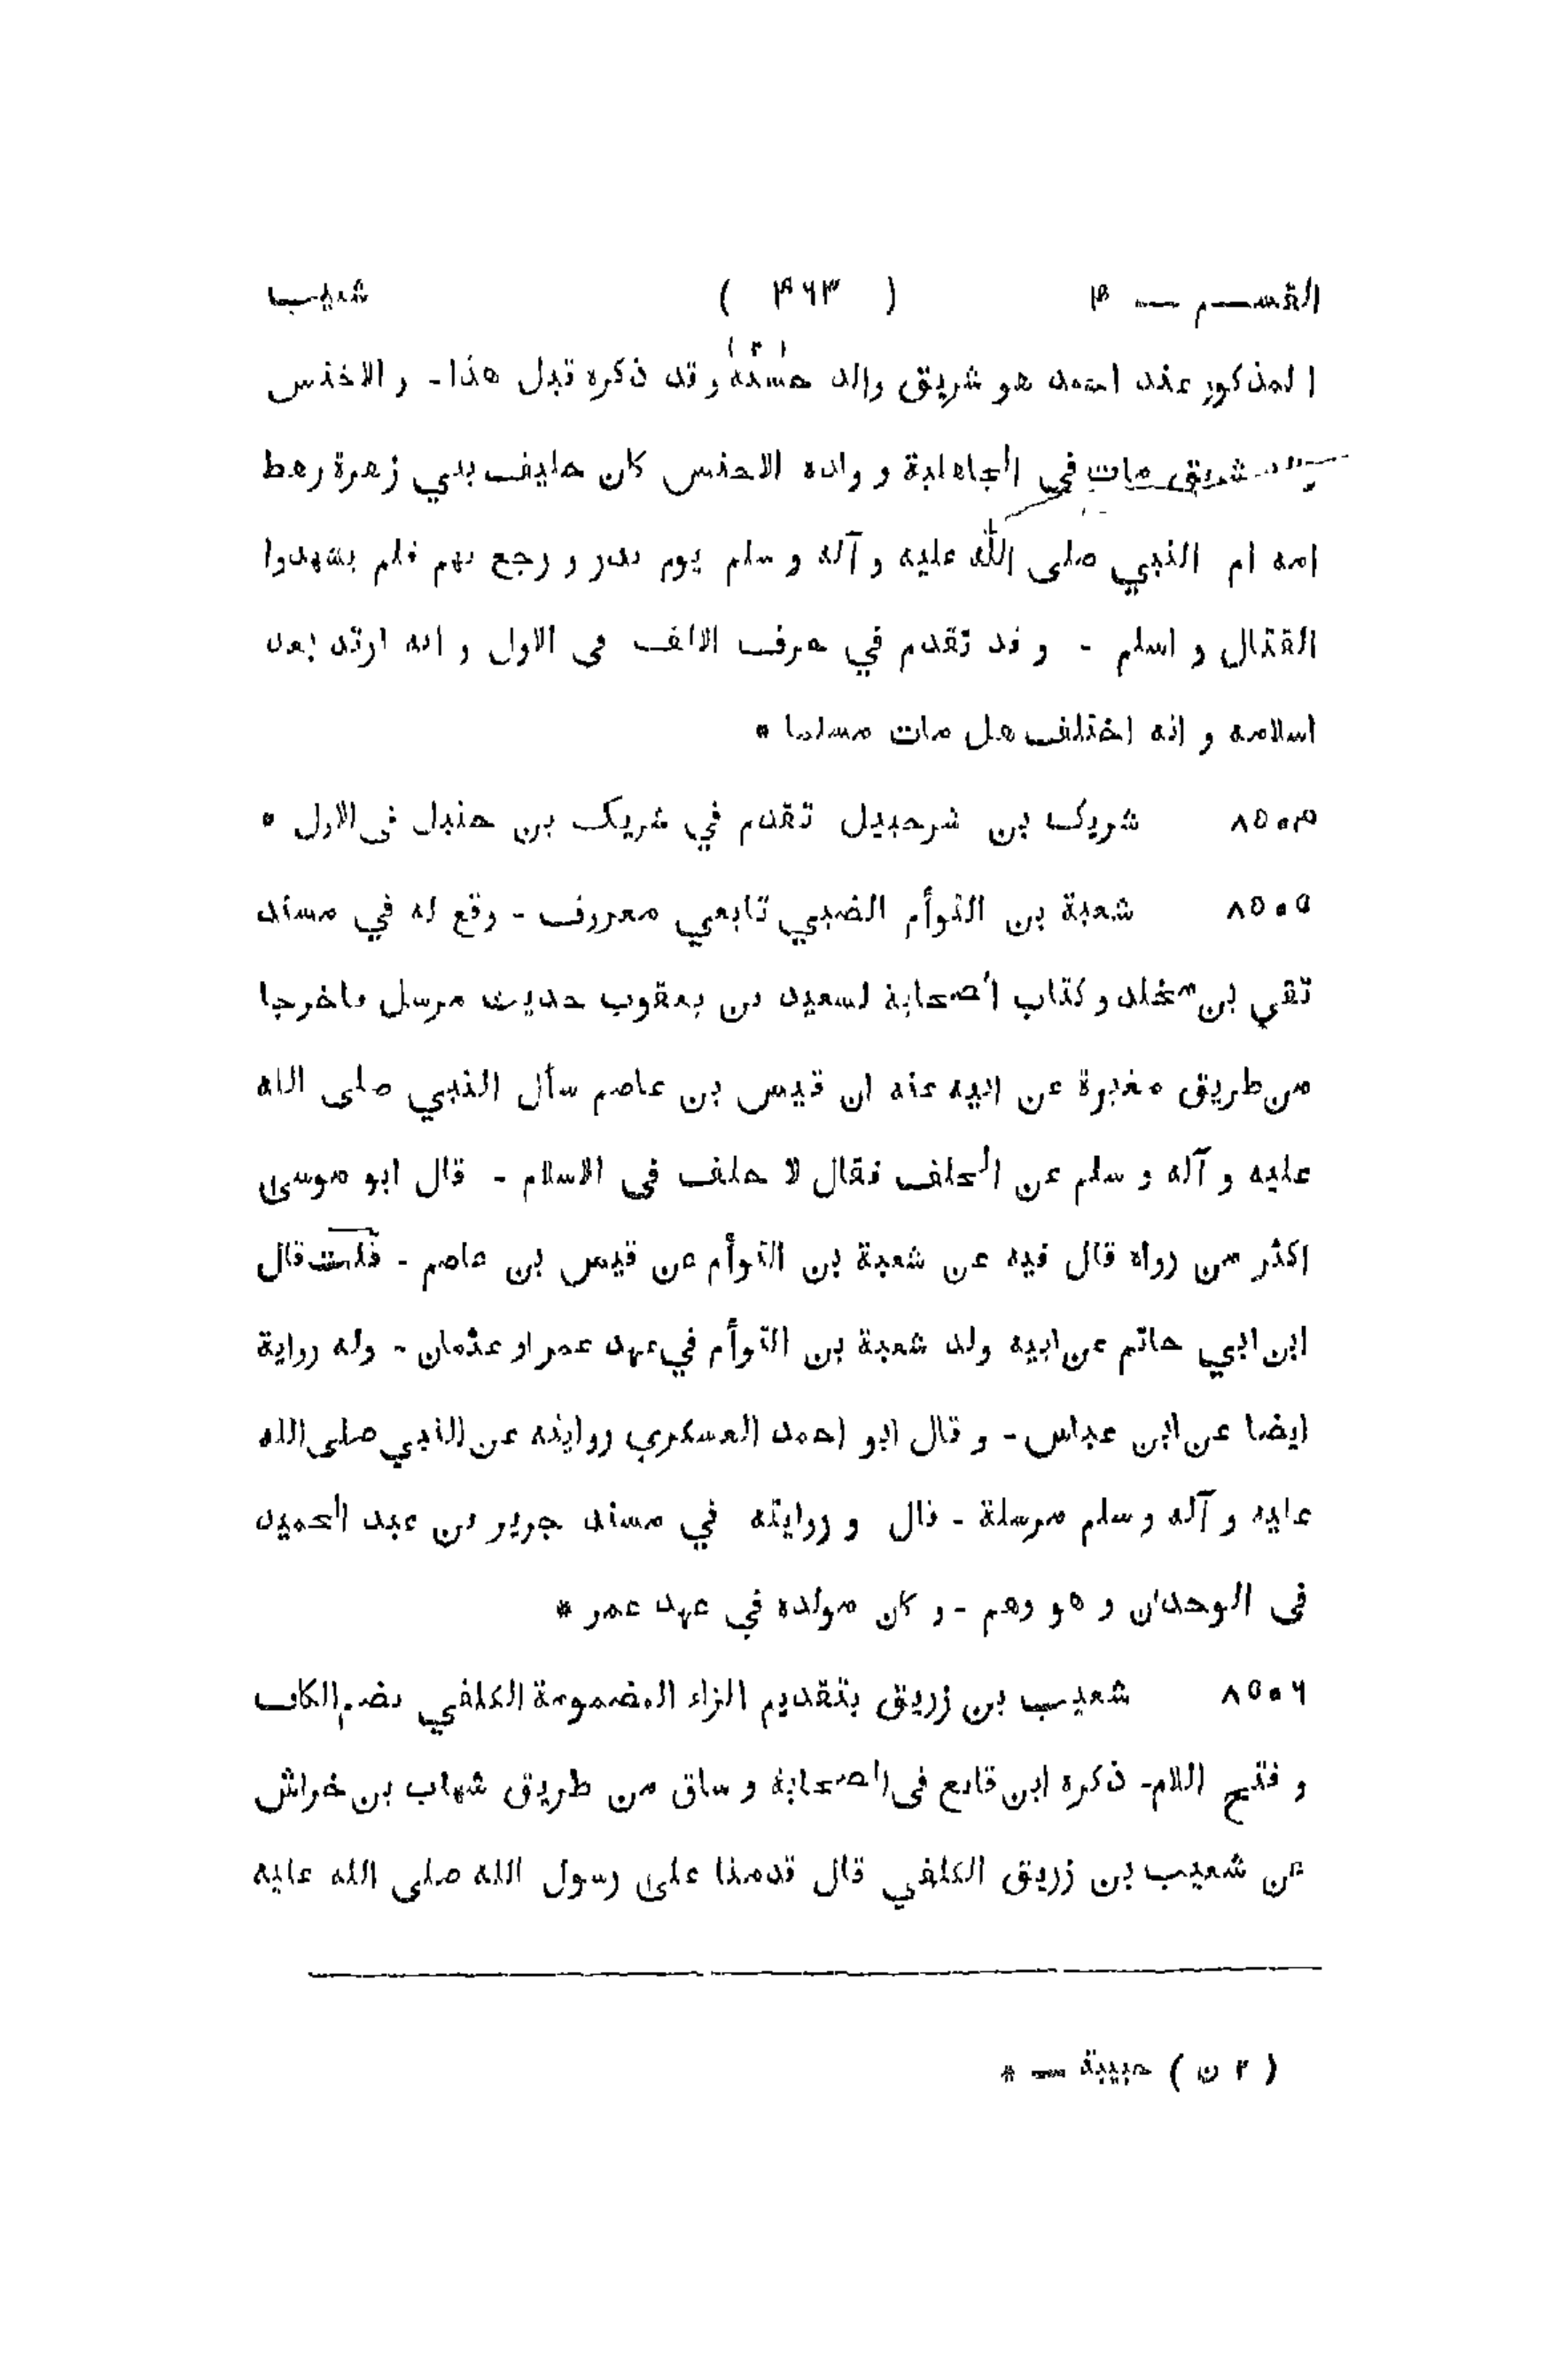 القسم — ۴ ( ۴۶۳ ) شعيب
المذكور عند احمد هو شريق والد حسنة (۲) و قد ذكره قبل هذا - و الاخنس
شريق مات فى الجاهلية و ولده الاخنس كان حليف بني زهرة رهط
امه ام النبي صلى الله عليه و آله و سلم يوم بدر و رجع بهم فلم يشهدوا
القتال و اسلم - و قد تقدم في حرف الالف فى الاول و انه ارتد بعد
اسلامه و انه اختلف هل مات مسلما *
۸۵۰۴ شريك بن شرحبيل تقدم في شريك بن حنبل فى الاول *
۸۵۰۵ شعبة بن التوأم الضبي تابعي معروف - وقع له في مسند
تقي بن مخلد و كتاب الصحابة لسعيد بن يعقوب حديث مرسل فاخرجا
من طريق مغيرة عن ابيه عنه ان قيس بن عاصم سأل النبي صلى الله
عليه و آله و سلم عن الحلف فقال لا حلف فى الاسلام - قال ابو موسى
اكثر من رواه قال فيه عن شعبة بن التوأم عن قيس بن عاصم - قلت قال
ابن ابي حاتم عن ابيه ولد شعبة بن التوأم في عهد عمر او عثمان - وله رواية
ايضا عن ابن عباس - و قال ابو احمد العسكري روايته عن النبي صلى الله
عليه و آله و سلم مرسلة - قال و روايته في مسند جرير بن عبد الحميد
فى الوحدان و هو وهم - و كان مولده في عهد عمر *
۸۵۰۶ شعيب بن زريق بتقديم الزاء المضمومة الكلفي بضم الكاف
و فتح اللام - ذكره ابن قانع فى الصحابة و ساق من طريق شهاب بن خراش
عن شعيب بن زريق الكلفي قال قدمنا على رسول الله صلى الله عليه
( ۲ ن ) حبيبة — *